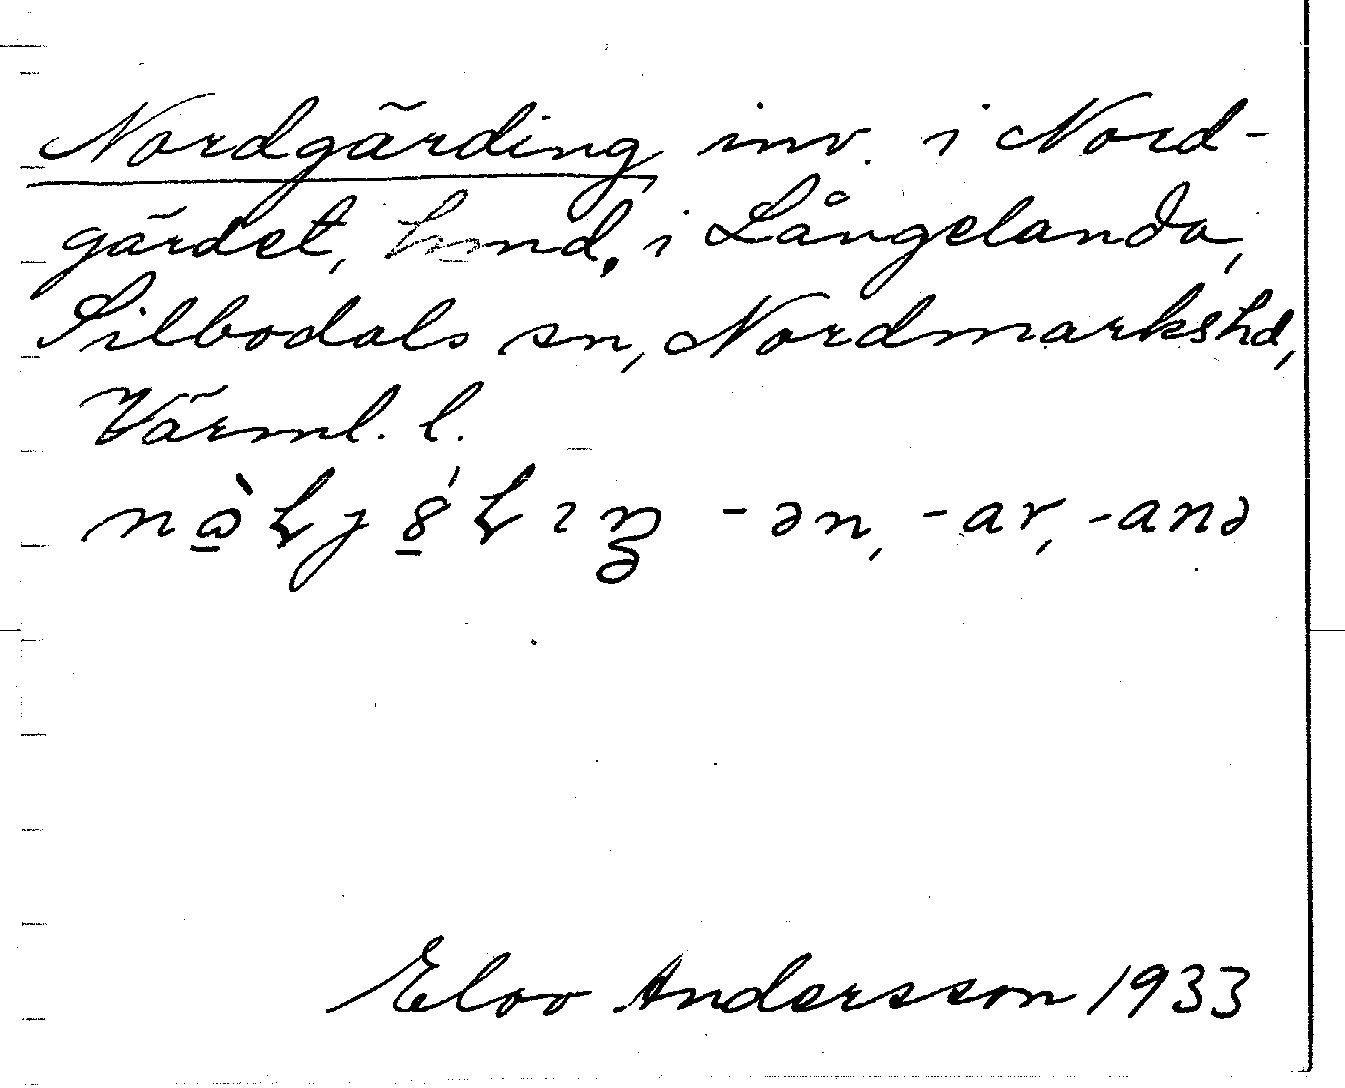 Nordgärding inv. i Nord-
gärdet, hmd, i Långelanda,
Silbodals sn, Nordmarkshd,
Värml. l.
-ən, -ar, -anə
Elov Andersson 1933